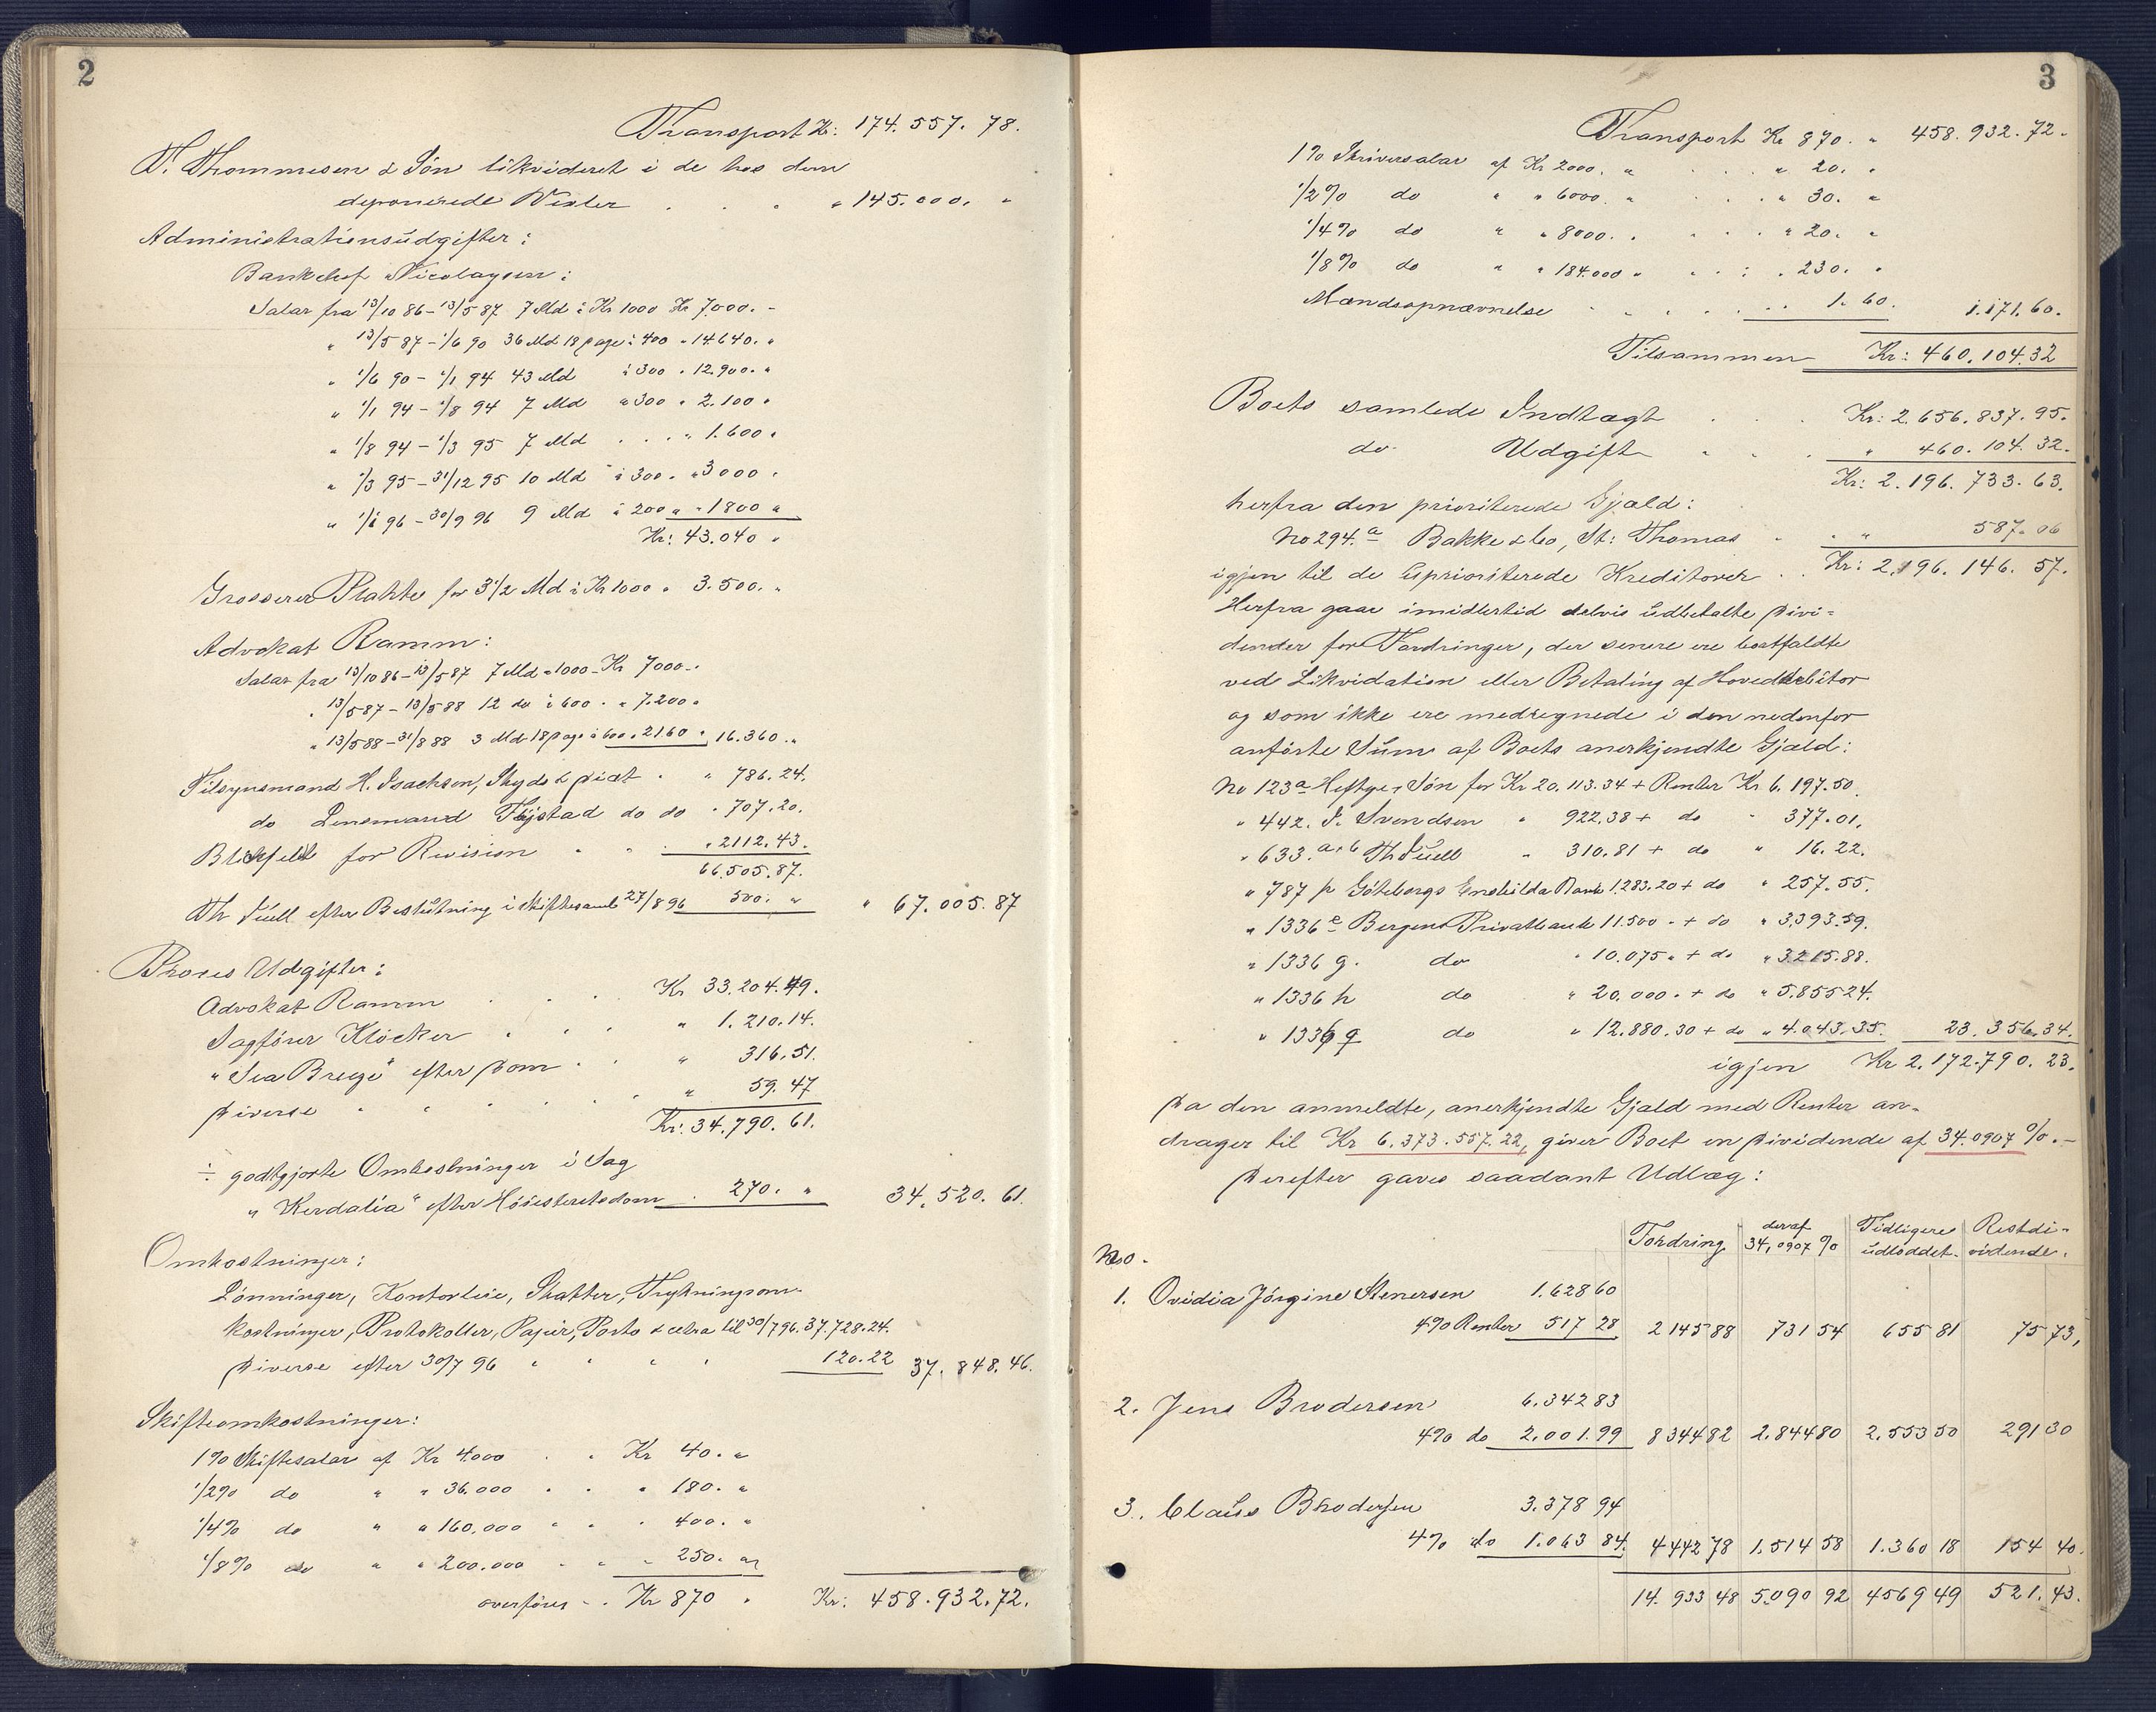 2
Transport Kr: 174.557.78.
T. Thommesen & Søn likvideret i de hos dem
deponerede Vexler . . . „ 145.000. „
Administrationsudgifter:
Bankchef Nicolaysen:
Salar fra 13/10 86 – 13/5 87 7 Md à Kr 1000 Kr 7000. –
„ 13/5 87 – 1/6 90 36 Md 18 Dage à 400 „ 14640. „
„ 1/6 90 – 1/1 94 43 Md à 300 „ 12.900. „
„ 1/1 94 – 1/8 94 7 Md à 300 „ 2.100 „
„ 1/8 94 – 1/3 95 7 Md . . . „ 1.600 „
„ 1/3 95 – 31/12 95 10 Md à 300. „ 3000 „
„ 1/1 96 – 30/9 96 9 Md à 200 „ „ 1800 „
Kr: 43.040 „
Grosserer Plahte for 3 1/2 Md à Kr 1000 „ 3.500. „
Advokat Ramm:
Salar fra 13/10 86 – 13/5 87 7 Md à 1000 – Kr 7000 –.
„ 13/5 87 – 13/5 88 12 do à 600 . „ 7.200 „
„ 13/5 88 – 31/8 88 3 Md 18 Dage à 600 „ 2160 „ 16.360. „
Tilsynsmand H. Isachsen, Skyds & Diæt . „ 786.24.
do Lensmand Fejstad do do „ 707.20.
Blichfeldt for Revision . . . „ 2112.43.
66.505.87.
Th Juell efter Beslutning i skiftesamli 27/8 96 500. „ „ 67.005.87
Proces Udgifter:
Advokat Ramm . . . Kr 33.204.49.
Sagfører Klöcker . . . „ 1.210.14.
„Sea Breeze“ efter Dom . . „ 316.51.
Diverse . . . . . . „ 59.47
Kr: 34.790.61.
÷ godtgjorte Omkostninger i Sag
„Kerdalia“ efter Høiesteretsdom . 270. „ 34.520.61.
Omkostninger:
Lønninger, Kontorleie, Skatter, Trykningsom-
kostninger, Protokoller, Papir, Porto & cetra til 30/7 96. 37.728.24.
Diverse efter 30/7 96 „ „ „ „ 120.22 37.848.46.
Skifteomkostninger:
1% Skiftesalar af Kr 4000 . . Kr 40. „
1/2% do „ „ 36.000 . . „ 180. „
1/4% do „ „ 160.000 „ „ „ 400. „
1/8% do „ „ 200.000 . . „ 250. „
overføres – . Kr 870 . Kr: 458.932.72.
3
Transport Kr 870. „ 458.932.72.
1% Skriversalar af Kr 2000. „ . . „ 20. „
1/2% do „ „ 6000. „ . . „ 30. „
1/4% do „ „ 8000. . . . „ 20. „
1/8% do „ „ 184.000 „ . . . 230. „
Mændsopnævnelse . . . . . . 1.60. 1.171.60.
Tilsammen Kr: 460.104.32
Boets samlede Indtægt . . . Kr: 2.656.837.95.
do. Udgift . . . „ 460.104.32.
Kr: 2.196.733.63.
herfra den prioriterede Gjæld:
No 294.a Bakke & Co, St: Thomas . . „ 587.06
igjen til de uprioriterede Kreditorer . . Kr: 2.196.146.57.
Herfra gaar imidlertid delvis udbetalte Divi-
dender for Fordringer, der senere ere bortfaldte
ved Likvidation eller Betaling af Hoveddebitor
og som ikke ere medregnede i den nedenfor
anførte Sum af Boets anerkjendte Gjæld:
No 123a Heftye & Søn for Kr 20.113.34 + Renter Kr 6.197.50.
„ 442. S. Svendsen „ 922.38 + do „ 377.01.
„ 633.a+b Th Juell „ 310.81 + do „ 16.22.
„ 787 p Göteborgs Enskilda Bank 1.283.20 + do „ 257.55.
„ 1336 e Bergens Privatbank 11.500 – + do „ 3.393.59.
„ 1336 g. do „ 10.075 „ + do „ 3.215.88.
„ 1336 h do „ 20.000. + do „ 5.855 24.
„ 1336 q do „ 12.880.30 + do „ 4.043.35. 23.356.34.
igjen Kr 2.172.790.23.
Da den anmeldte, anerkjendte Gjæld med Renter an-
drager til Kr 6.373.557.22, giver Boet en Dividende af 34.0907 %. –
Derefter gaves saadant Udlæg:
No. Fordring deraf 34,0907 % Tidligere udloddet. Restdi-vidende.
1. Ovidia Jørgine Stenersen 1.628 60
4% Renter 517 28 2145 88 731 54 655 81 75 73,
2. Jens Brodersen 6.342 83
4% do 2.001.99 8344 82 2.844 80 2.553 50 291 30
3. Claus Brodersen 3.378 94
4% do 1.063 84. 4442 78 1.514 58 1.360 18 154 40.
14.933 48 5.090 92 4569 49 521.43.